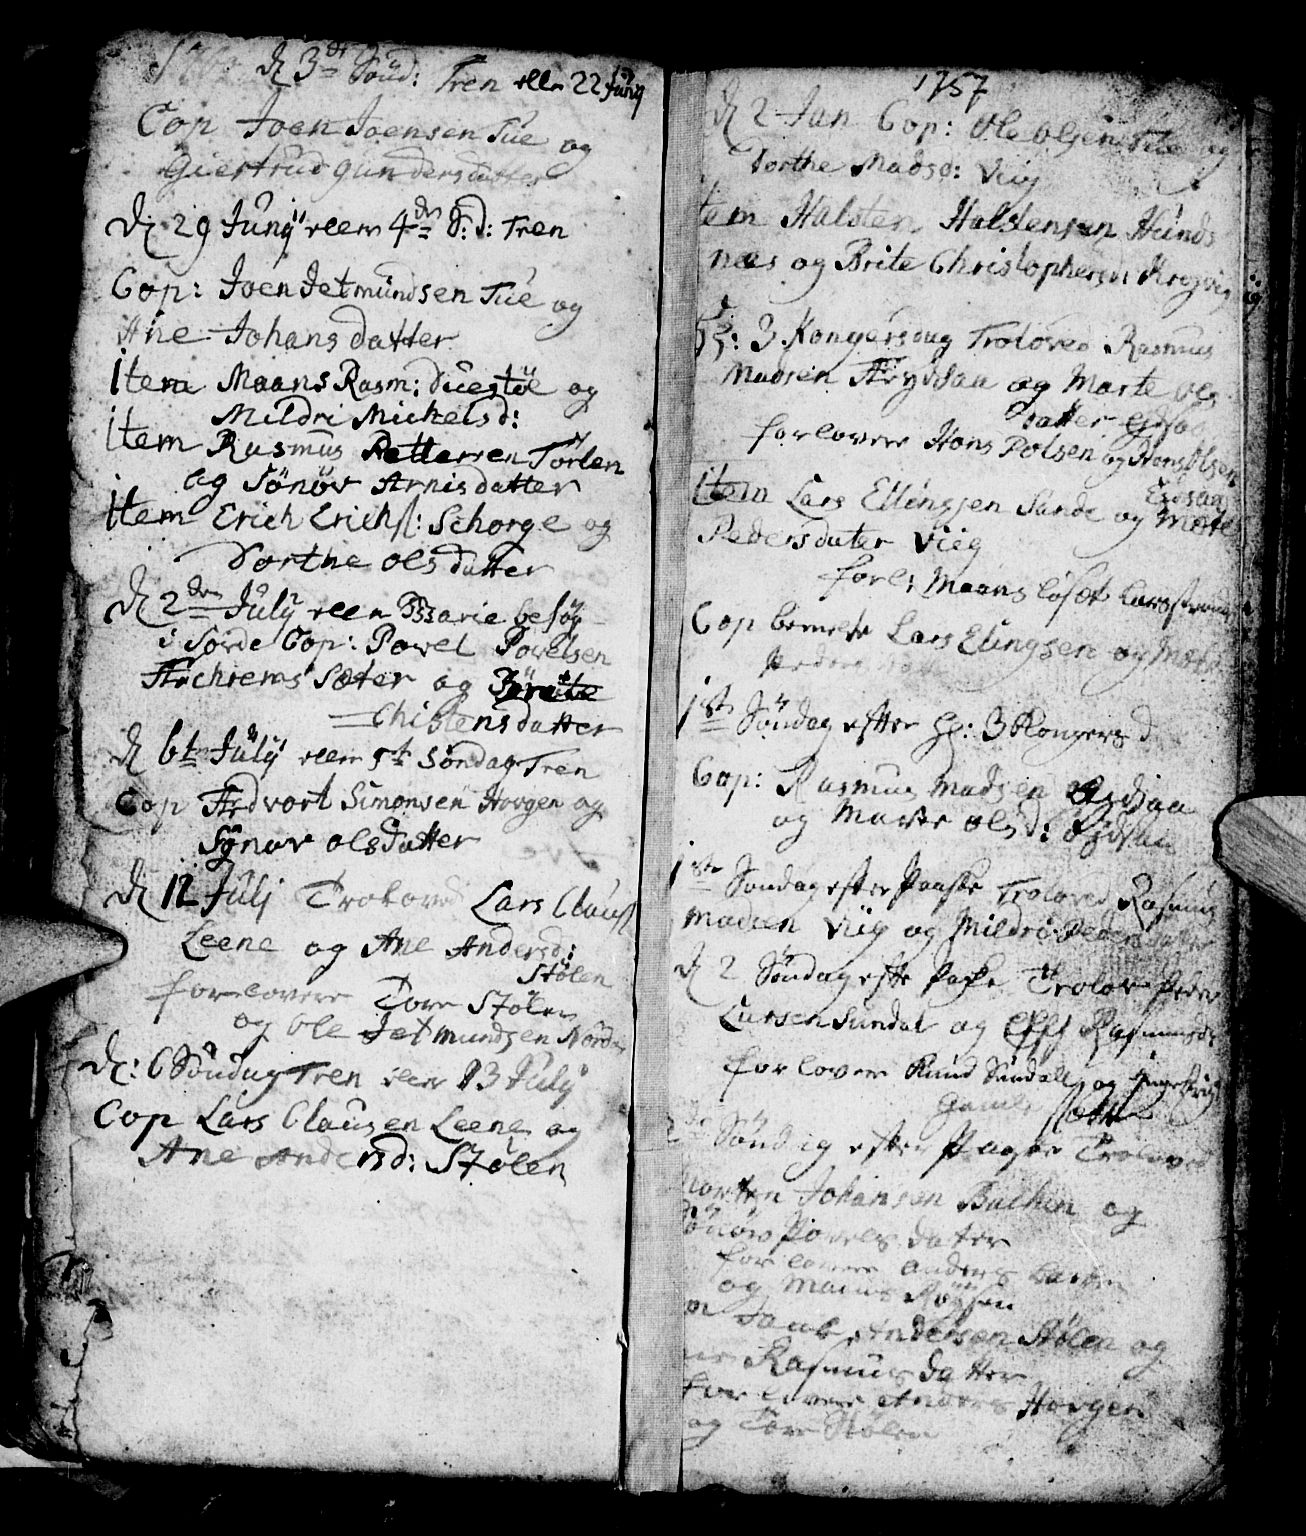 d 3de Sönd: Tren eller 22 Junij
Cop Joen Joensen Tue og
Giertrud Gundersdatter
d 29 Junij eller 4de S:d: Tren
Cop: Joen Jetmundsen Tue og
Ane Johansdatter
Item Maans Rasm: Duestøl og
Mildri Mickelsd:
Item Rasmus Pettersen Torlen
og Sönöv Arnisdatter
Item Erich Erichs: Schorge og
Dorthe Olsdatter
d 2den Julij eller Marie besøg
i Sørde Cop: Povel Povelsen
Sæter og
Chistensdatter
d 6te Julij eller 5te Söndag Tren
Cop Advort Simonsen Hovgen og
Sönov Olsdatter
d 12 Julj Troloved Lars Claus
Leene og Ane Andersd:
Stølen
forlovere Tore Stølen
og Ole Jetmundsen
d: 6 Söndag Tren eller 13 Julij
Cop Lars Clausen Leene og
Ane Andersd: Stølen
1757
d 2 Jan Cop: Ole Olsen Tue og
Dorthe Madsd: Viig
Item Halsten Halstensen Hunds
næs og Brite Christophersd Krogvig
H: 3 Kongersdag Troloved Rasmus
Madsen og Marte Ols
datter
forlovere Hans Polsen og Hans Olsen
Item Lars Ellingsen Sande og Marte
Pedersdater Viig
forl: Maans
Cop bemelte Lars Elingsen og Marte
Peders
1ste Søndag efter H: 3 Kongers d
Cop: Rasmus Madsen
og Marte Olsd:
1ste Søndag efter Paaske Troloved Rasmus
Madsen Viig og Mildri Pedersdatter
d 2 Søndag efter Paaske Trolov Peder
Larsen Sundal og Rasmusd
forlover Knud Sundall og
Søndag efter Paaske Troloved
Morten Johansen Bachen og
Sönöv Povelsdater
forlovere Anders
og Maans
Jacob Andersen Stølen og
Rasmusdatter
forlovere Anders Hovgen
og Tore Stølen